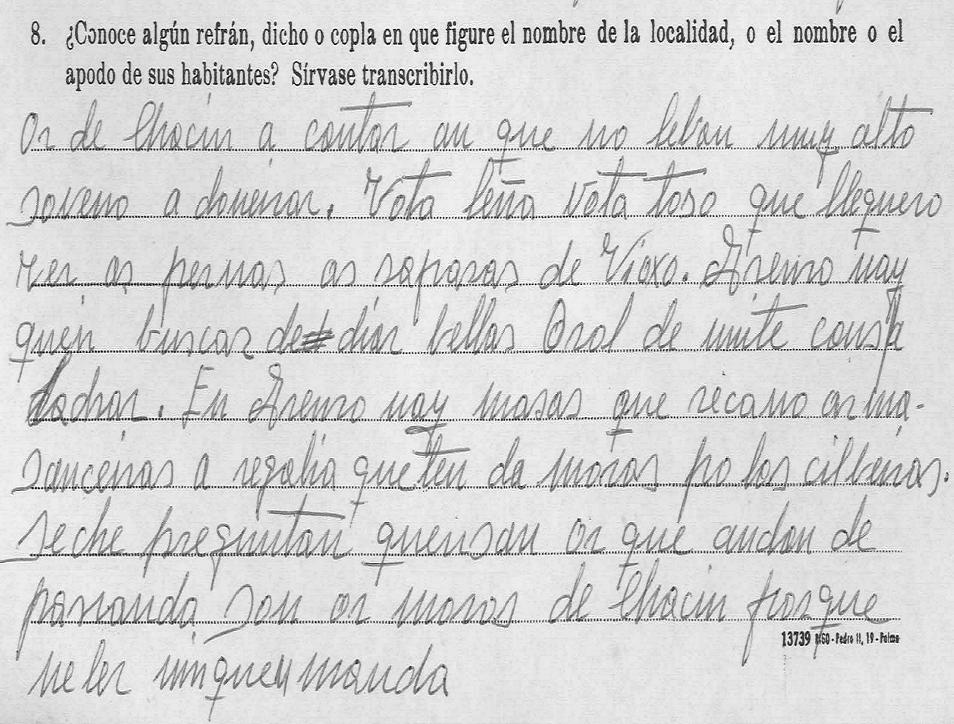 8. ¿Conoce algún refrán, dicho o copla en que figure el nombre de la localidad, o el nombre o el
apodo de sus habitantes? Sírvase transcribirlo.
Os de Chacin a cantar an que no leban muy alto
soveno a doneirar. Vota leña Vota toso que llequero
ver as pernas as raposas de Vioxo. Asenso nay
quen buscar de dias bellas Orol de unite
ladrar. En Asenso nay mosas que secano as ma-
sanceiras a regalia que ten da moras po los cilbeiras.
se che preguntan quen san os que andan de
parranda son os mosos de Chacin porque
neles ninquen manda
13739 RISO - Pedro II, 19 - Palma